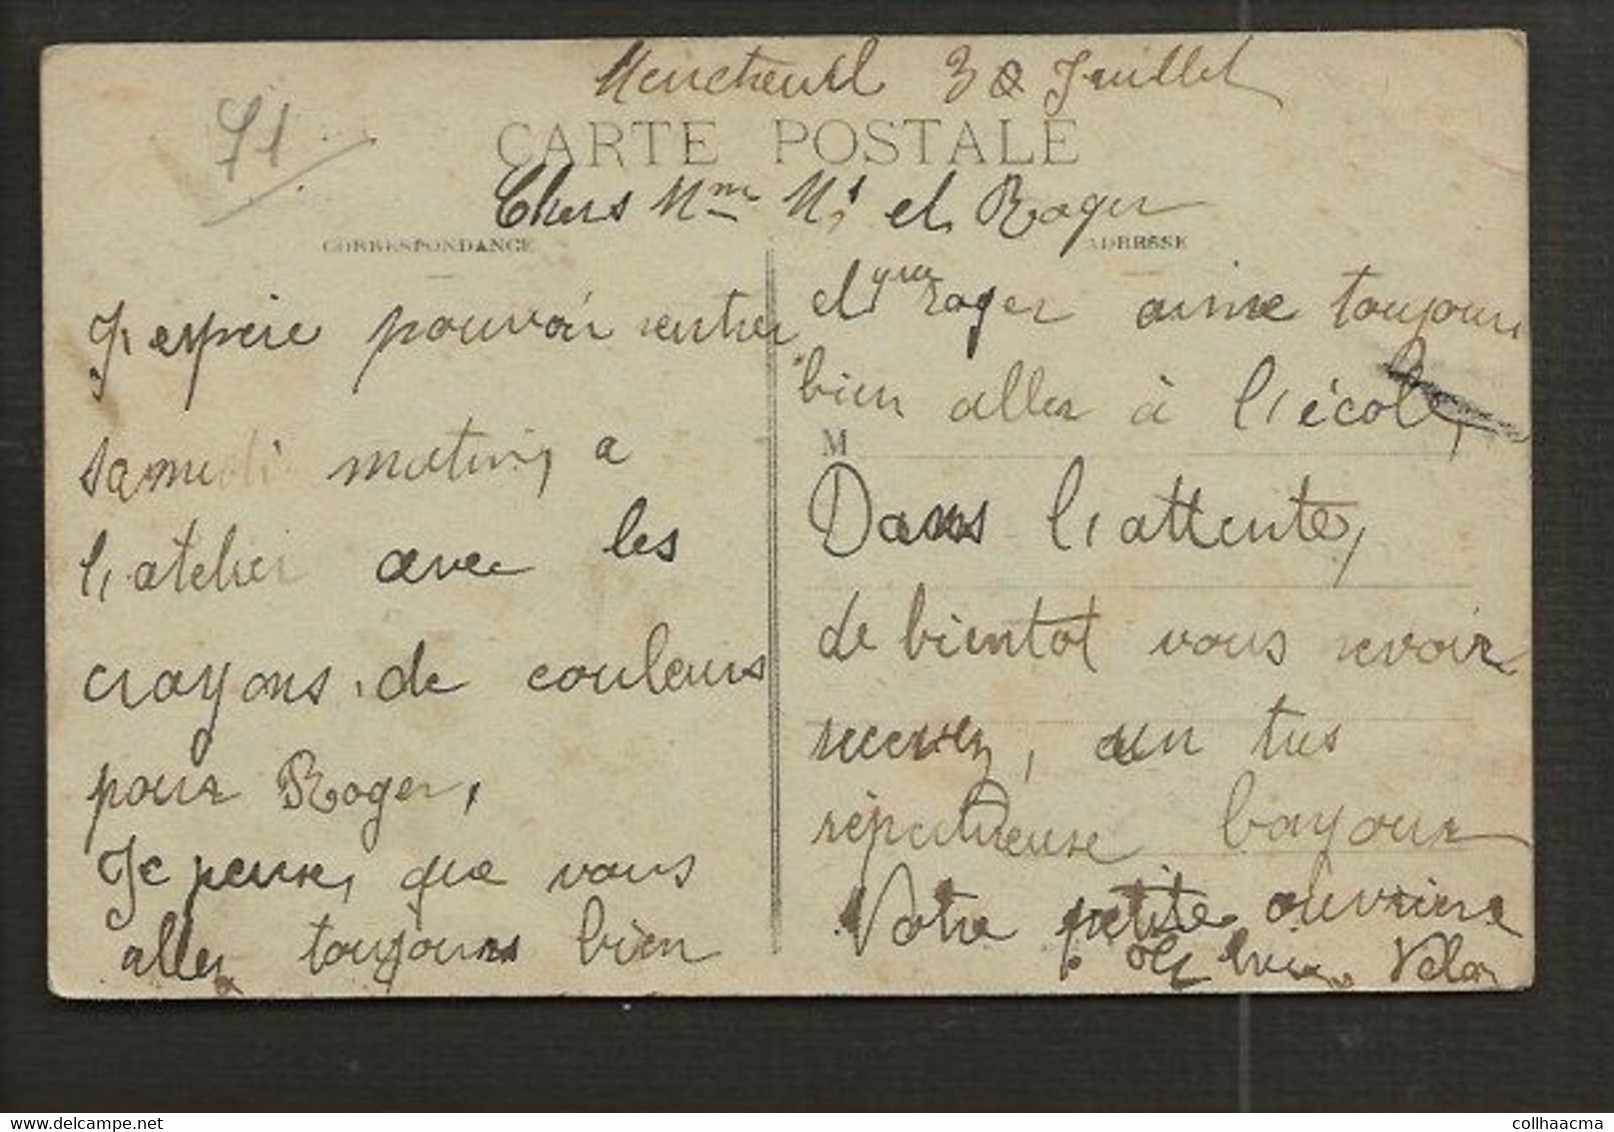 71
30 Juillet
CARTE POSTALE
Chers Mme Mr et Roger
CORRESPONDANCE
ADRESSE
J'espère pouvoir rentrer
samedi matin, a
l'atelier avec les
crayons de couleurs
pour Roger,
Je pense, que vous
aller toujours bien
et que roger aime toujours
bien aller à l'école,
M
Dans l'attente,
de bientot vous revoir
recevez, un
bayour
Votre petite ouvriere
collhaacma